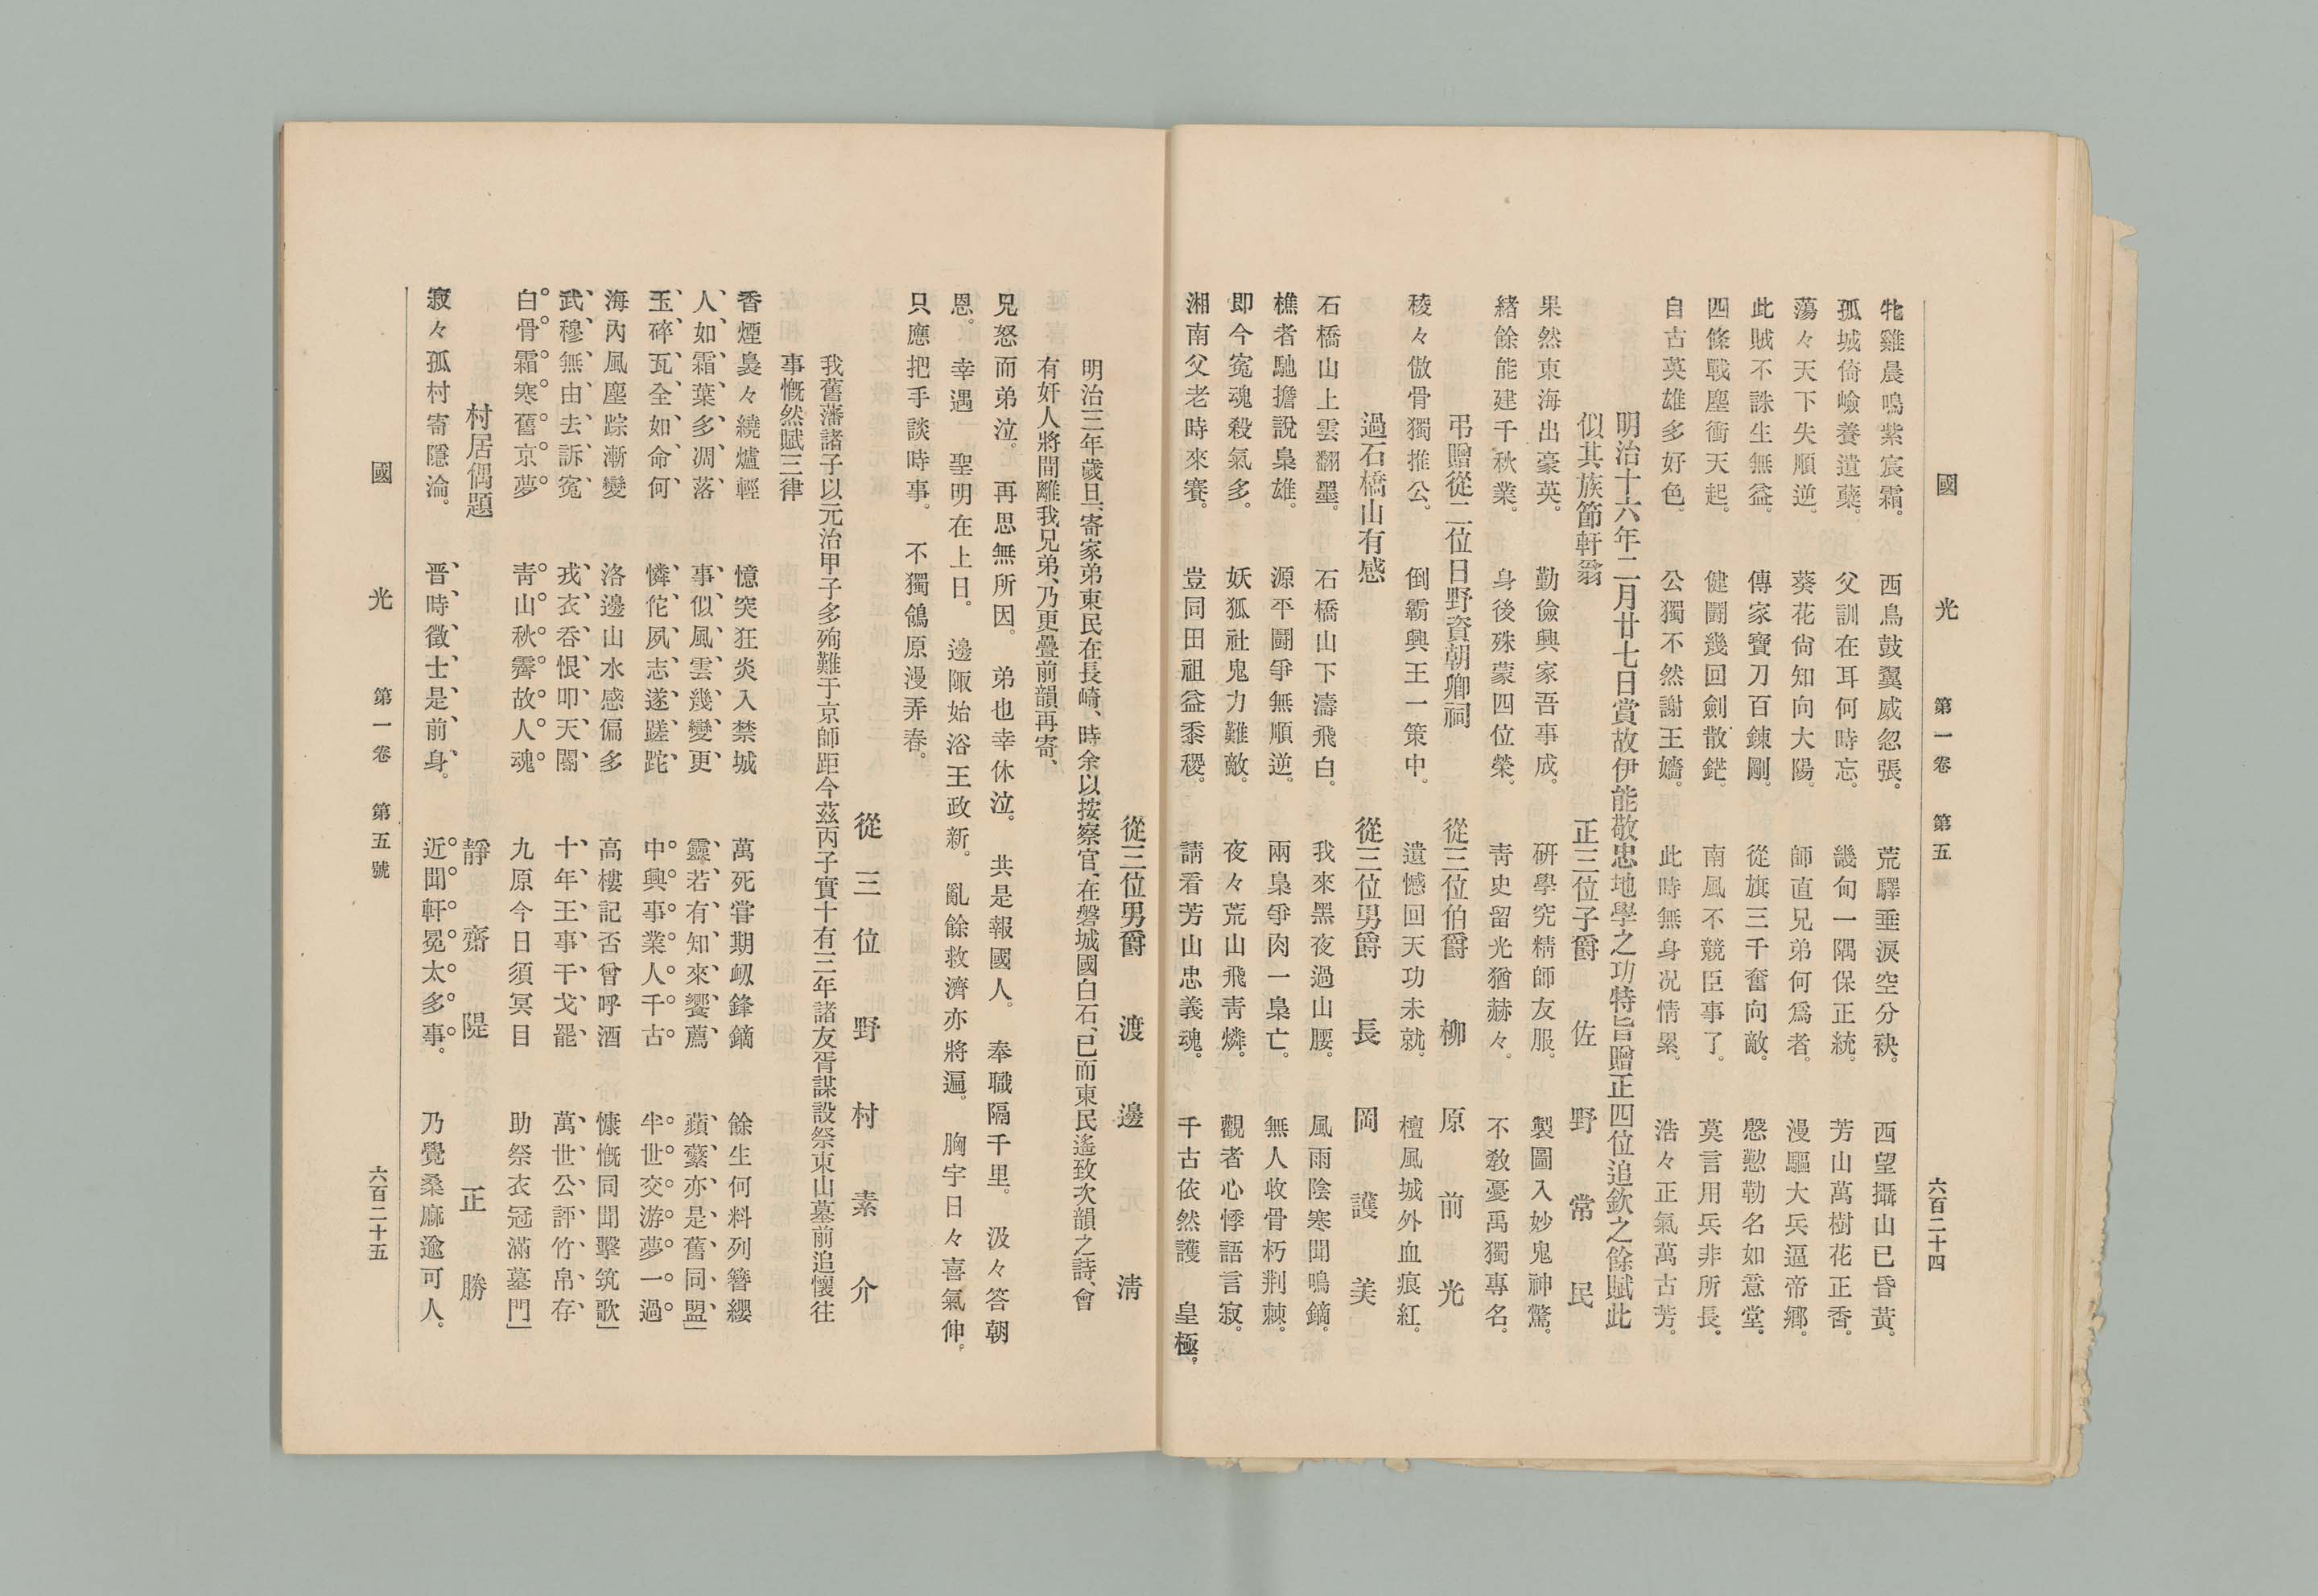 國光 第一卷 第五 六百二十四
牝雞晨鳴紫宸霜。 西鳥鼓翼威忽張。 荒驛垂淚空分袂。 西望攝山已昏黃。
孤城倚嶮養遺蘖。 父訓在耳何時忘。 畿甸一隅保正統。 芳山萬樹花正香。
蕩々天下失順逆。 葵花尙知向大陽。 師直兄弟何爲者。 漫驅大兵逼帝鄕。
此賊不誅生無益。 傳家寶刀百鍊剛。 從旗三千奮向敵。 慇懃勒名如意堂。
四條戰塵衝天起。 健鬪幾回劍散鋩。 南風不競臣事了。 莫言用兵非所長。
自古英雄多好色。 公獨不然謝王嬙。 此時無身况情累。 浩々正氣萬古芳。
明治十六年二月廿七日賞故伊能敬忠地學之功特旨贈正四位追欽之餘賦此
似其族節軒翁 正三位子爵 佐野常民
果然東海出豪英。 勤儉興家吾事成。 硏學究精師友服。 製圖入妙鬼神驚。
緖餘能建千秋業。 身後殊蒙四位榮。 靑史留光猶赫々。 不敎憂禹獨專名。
弔贈從二位日野資朝卿祠 從三位伯爵 柳原前光
稜々傲骨獨推公。 倒霸興王一策中。 遺憾回天功未就。 檀風城外血痕紅。
過石橋山有感 從三位男爵 長岡護美
石橋山上雲翻墨。 石橋山下濤飛白。 我來黑夜過山腰。 風雨陰寒聞鳴鏑。
樵者馳擔說梟雄。 源平鬪爭無順逆。 兩梟爭肉一梟亡。 無人收骨朽荆棘。
即今寃魂殺氣多。 妖狐社鬼力難敵。 夜々荒山飛靑燐。 觀者心悸語言寂。
湘南父老時來賽。 豈同田祖益黍稷。 請看芳山忠義魂。 千古依然護 皇極。
從三位男爵 渡邊元淸
明治三年歲旦、寄家弟東民在長崎、時余以按察官、在磐城國白石、已而東民遙致次韻之詩、會
有奸人將間離我兄弟、乃更疊前韻再寄、
兄怒而弟泣。 再思無所因。 弟也幸休泣。 共是報國人。 奉職隔千里。 汲々答朝
恩。 幸遇 聖明在上日。 邊陬始浴王政新。 亂餘救濟亦將遍。 胸宇日々喜氣伸。
只應把手談時事。 不獨鴒原漫弄春。
從三位 野村素介
我舊藩諸子以元治甲子多殉難于京師距今茲丙子實十有三年諸友胥謀設祭東山墓前追懷往
事慨然賦三律
香煙裊々繞爐輕 憶突狂炎入禁城 萬死甞期衂鋒鏑 餘生何料列簪纓
人如霜葉多凋落 事似風雲幾變更 靈若有知來饗薦 蘋蘩亦是舊同盟」
玉碎瓦全如命何 憐佗夙志遂蹉跎 中興事業人千古 半世交游夢一過
海內風塵踪漸變 洛邊山水感偏多 高樓記否曾呼酒 慷慨同聞擊筑歌」
武穆無由去訴寃 戎衣呑恨叩天閽 十年王事干戈罷 萬世公評竹帛存
白骨霜寒舊京夢 靑山秋霽故人魂 九原今日須冥目 助祭衣冠滿墓門」
村居偶題 靜齋 隄正勝
寂々孤村寄隱淪。 晋時徵士是前身。 近聞軒冕太多事。 乃覺桑麻逾可人。
國光 第一卷 第五號 六百二十五